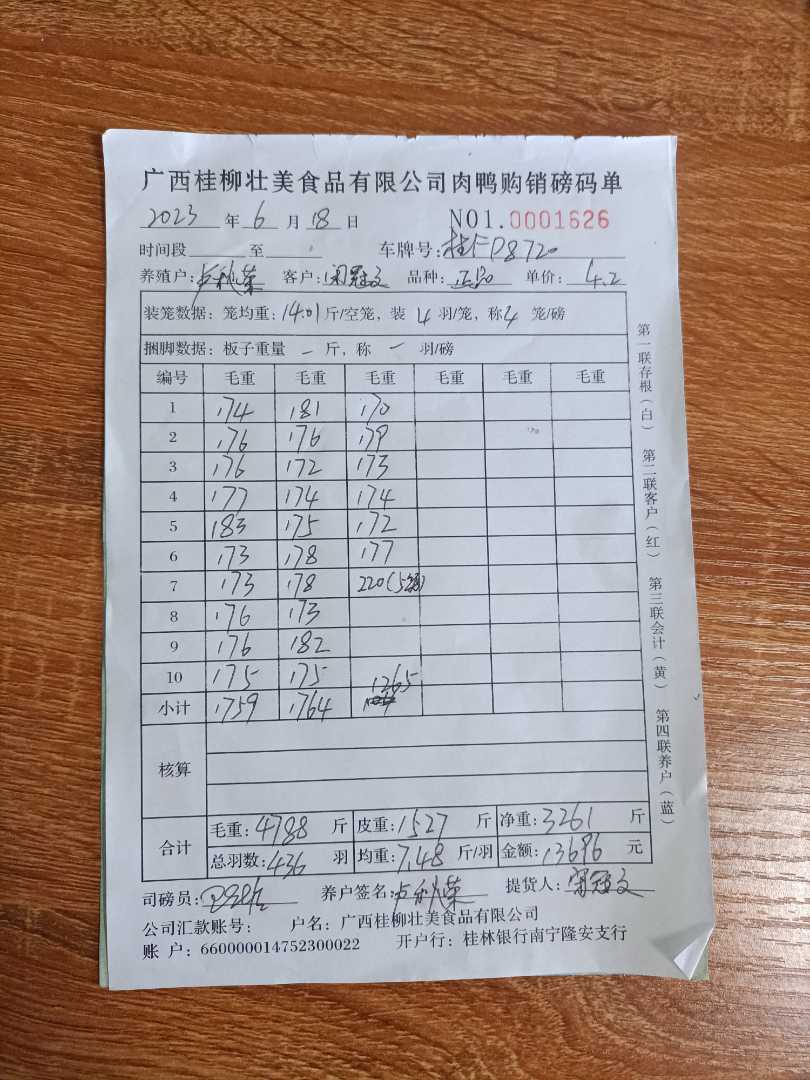 广西桂柳壮美食品有限公司肉鸭购销磅码单
2023 年 6 月 18 日 NO1.0001626
时间段 至 车牌号: 桂 D8720
养殖户: 卢秋荣 客户: 闭冠文 品种: 正品 单价: 4.2
装笼数据: 笼均重: 14.01 斤/空笼, 装 4 羽/笼, 称 4 笼/磅
捆脚数据: 板子重量 — 斤, 称 — 羽/磅
编号 毛重 毛重 毛重 毛重 毛重 毛重
1 174 181 170
2 176 176 179
3 176 172 173
4 177 174 174
5 183 175 172
6 173 178 177
7 173 178 220(5笼)
8 176 173
9 176 182
10 175 175
小计 1759 1764 1265
核算
合计 毛重: 4788 斤 皮重: 1527 斤 净重: 3261 斤
总羽数: 436 羽 均重: 7.48 斤/羽 金额: 13696 元
司磅员: 养户签名: 卢秋荣 提货人: 闭冠文
公司汇款账号: 户名: 广西桂柳壮美食品有限公司
账 户: 660000014752300022 开户行: 桂林银行南宁隆安支行
第一联存根(白) 第二联客户(红) 第三联会计(黄) 第四联养户(蓝)